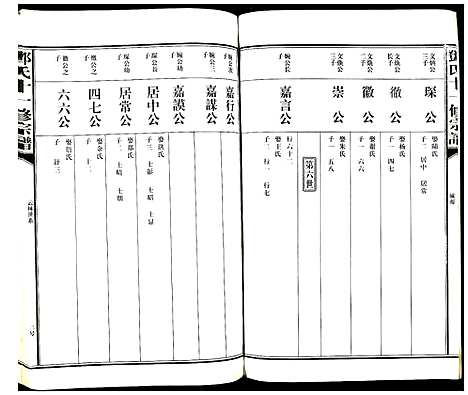 鄧氏十一修宗譜
文煥公子
琛公
子二 居中 居常
文煥公長子
徹公
娶楊氏
子一 四七
文煥公子
徽公
娶謝氏
子一 六六
文煥公子
崇公
娶朱氏
子一 五八
第六世
婉公長子
嘉言公
行六十二
娶王氏
子二 行一 行七
婉公次子
嘉行公
婉公三子
嘉謀公
婉公幼子
嘉謨公
琛公長子
居中公
娶洪氏
琛公幼子
居常公
娶鄒氏
徹公之子
四七公
娶余氏
徽公之子
六六公
鄧氏十一修宗譜